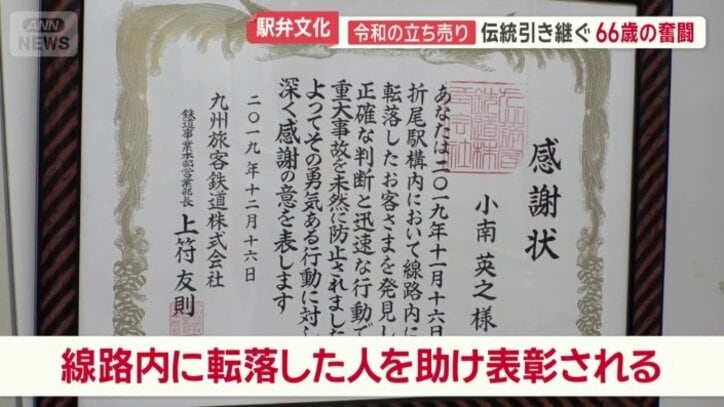 ANN
NEWS
駅弁文化
令和の立ち売り
伝統引き継ぐ 66歳の奮闘
感謝状
小南英之様
あなたは二〇一九年十一月十六日
折尾駅構内において線路内に
転落したお客さまを発見し
正確な判断と迅速な行動で
重大事故を未然に防止されました
よってその勇気ある行動に対し
深く感謝の意を表します
二〇一九年十二月十六日
九州旅客鉄道株式会社
鉄道事業本部営業部長
上符友則
線路内に転落した人を助け表彰される